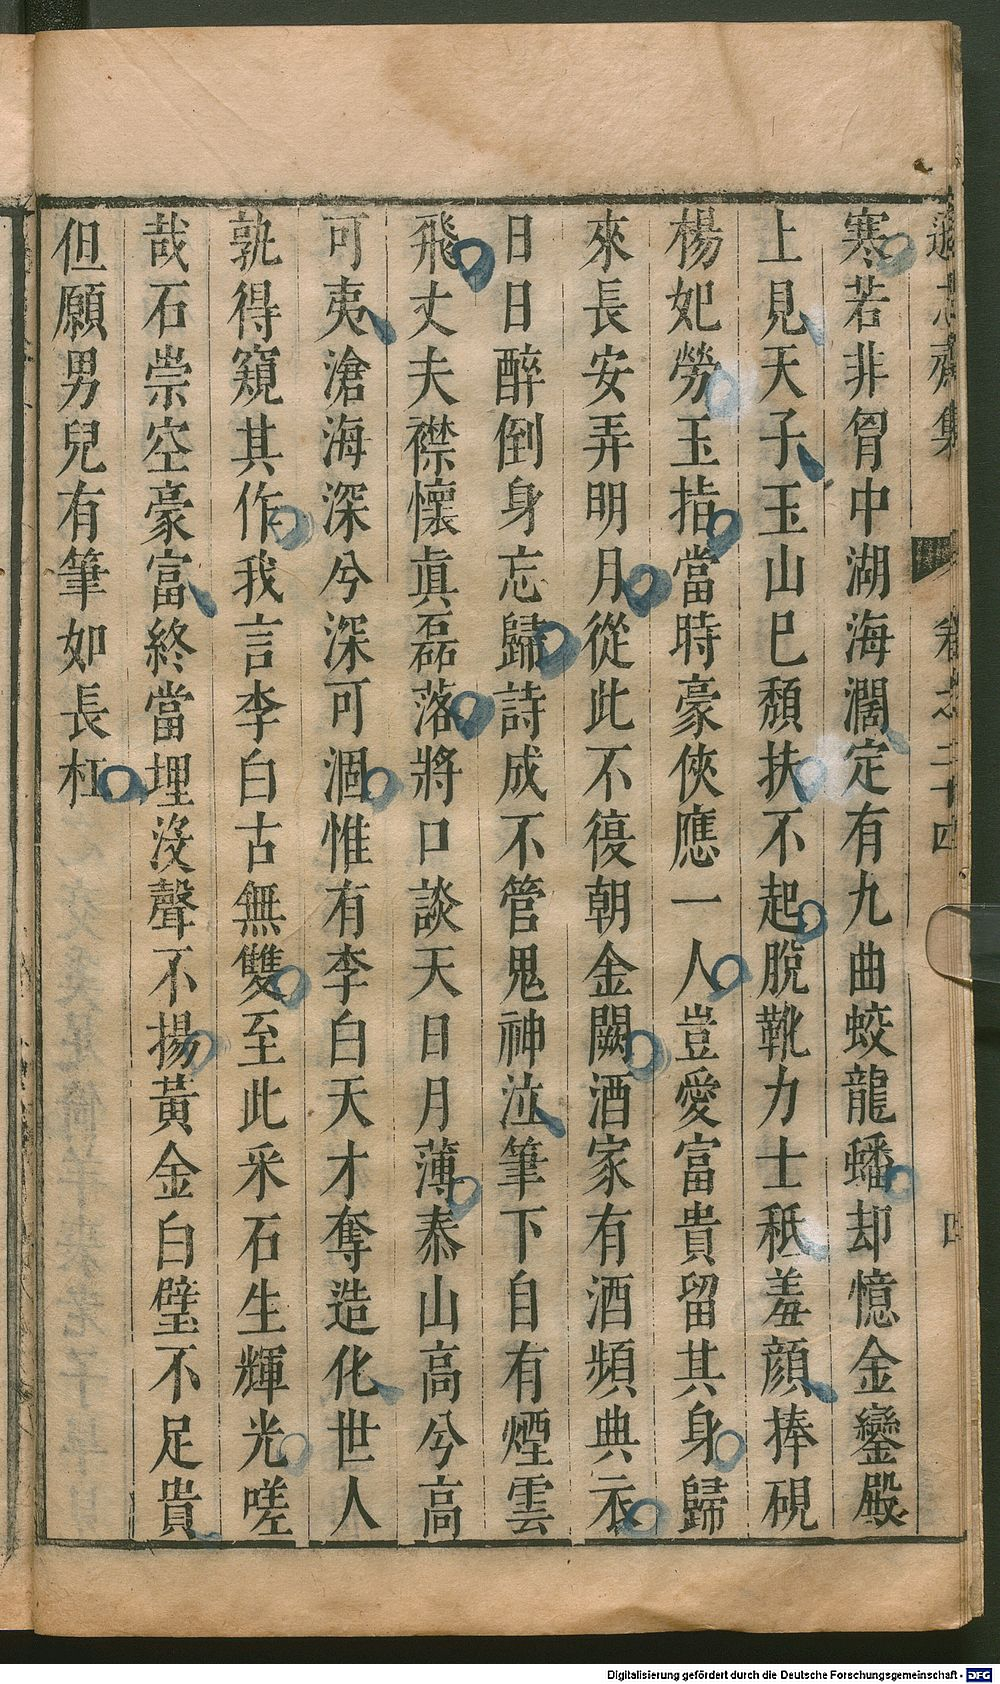 遜志齋集 卷之二十四 四
寒若非胷中湖海濶定有九曲蛟龍蟠却憶金鑾殿
上見天子玉山已頹扶不起脫靴力士秪羞顔捧硯
楊妃勞玉指當時豪俠應一人豈愛富貴留其身歸
來長安弄明月從此不復朝金闕酒家有酒頻典衣
日日醉倒身忘歸詩成不管鬼神泣筆下自有煙雲
飛丈夫襟懷眞磊落將口談天日月薄泰山高兮高
可夷滄海深兮深可涸惟有李白天才奪造化世人
孰得窺其作我言李白古無雙至此采石生輝光嗟
哉石崇空豪富終當埋沒聲不揚黃金白璧不足貴
但願男兒有筆如長杠
Digitalisierung gefördert durch die Deutsche Forschungsgemeinschaft - DFG